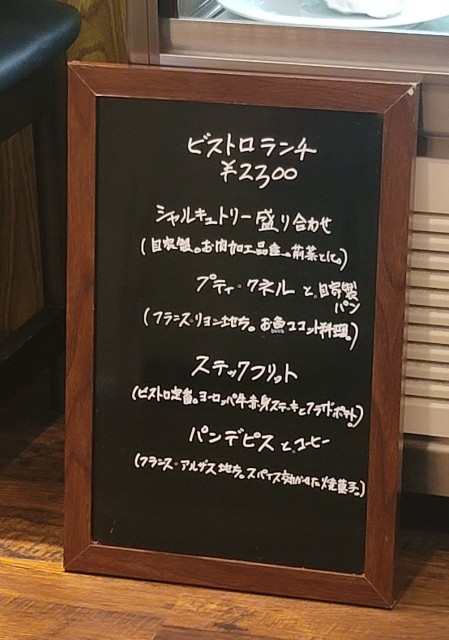 ビストロランチ
¥2300
シャルキュトリー盛り合わせ
(自家製。お肉加工品。前菜として。)
プティ・クネルと自家製
パン
(フランス・リヨン地方。お魚ココット料理。)
ステックフリット
(ビストロ定番。ヨーロッパ牛赤身ステーキとフライドポテト)
パンデピスとコーヒー
(フランス・アルザス地方。スパイス効かせた焼菓子。)